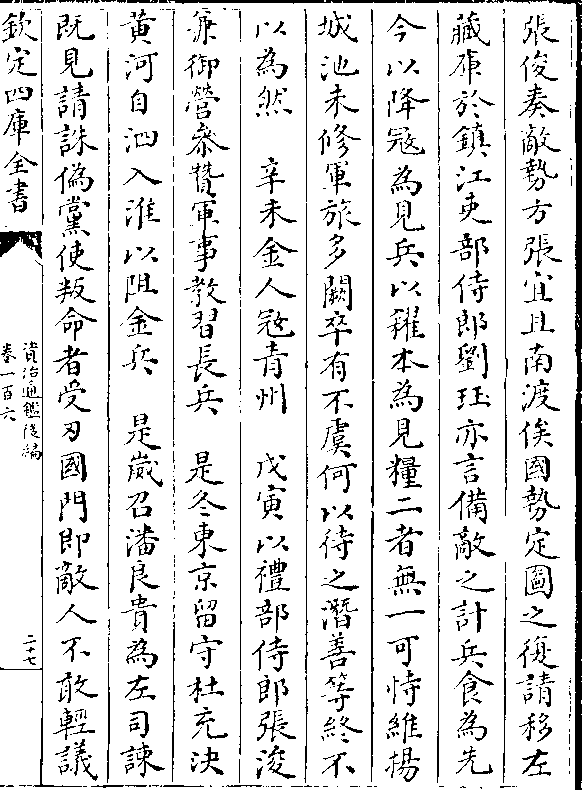 張俊奏敵勢方張宜且南渡俟國勢定圖之復請移左
藏庫於鎮江吏部侍郎劉珏亦言備敵之計兵食為先
今以降冦為見兵以糴本為見糧二者無一可恃維揚
城池未修軍旅多闕卒有不虞何以待之潛善等終不
以為然　辛未金人冦青州　戊寅以禮部侍郎張浚
兼御營參贊軍事教習長兵　是冬東京留守杜充決
黃河自泗入淮以阻金兵　是歲召潘良貴為左司諫
既見請誅偽黨使叛命者受刃國門即敵人不敢輕議
欽定四庫全書
資治通鑑後編
卷一百六
二十七